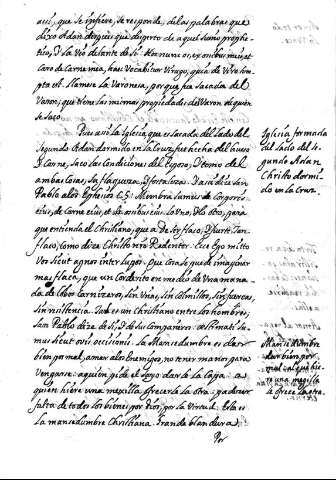 assi, que se infiere, se responde, de las palabras que
dixo Adan despues que desperto de aquel sueño prophe-
tico, I La vio delante de si. Hoc nunc os, ex ossibus meis, et
Caro de Carne mea, haec Vocabitur Virago, quia de Viro sum-
pta est. Llamese La Varonesa, porque fue sacada del
Varon, que tiene las mismas propiedades de Varon de quien
se saco.
Pues assi la Iglesia, que es sacada del Lado del
segundo Adan dormido en La Cruz, fue hecha del Gueso
I Carne, saco las Condiciones del Esposo, I tomo de
ambas Cosas, La flaqueza I fortaleza. I assi dize San
Pablo a los Ephesios C. 5. Membra sumus de Corpore
eius, de Carne eius, et de ossibus eius. Lo Uno, I Lo otro, para
que entienda el Christiano, que a de ser flaco, I fuerte. Tan
flaco, como dize Christo nuestro Redentor. Ecce Ego mitto
Vos sicut agnos inter Lupos. Que Cosa se puede imaginar
mas flaca, que un Corderito en medio de Una mana-
da de Lobos Carniceros, sin Uñas, sin Colmillos, sin fuerças,
sin resistencia. Tal es un Christiano entre los hombres,
San Pablo dize de Si, I de sus Compañeros. aestimati Su-
mus sicut oves occisionis. La Mansedumbre es dar
bien por mal, amar a los Enemigos, no tener manos para
Vengarse: a quien pide el sayo darle La Capa: a
quien hiere una mexilla ofrecerle La otra: padecer
falta de todos los bienes por Dios, por la Virtud. Esta es
La mansedumbre Christiana. Grande blandura
Por
Iglesia formada
del lado del se-
gundo Adan
Christo dormi-
do en la Cruz.
Mansedumbre
dar bien por
mal, al que hie-
re una mexilla
ofrece La otra.